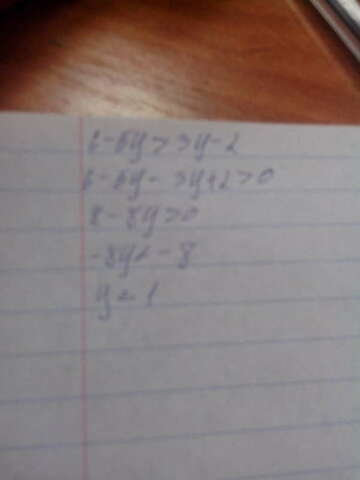 6-5y>3y-2
6-5y-3y+2>0
8-8y>0
-8y<-8
y = 1